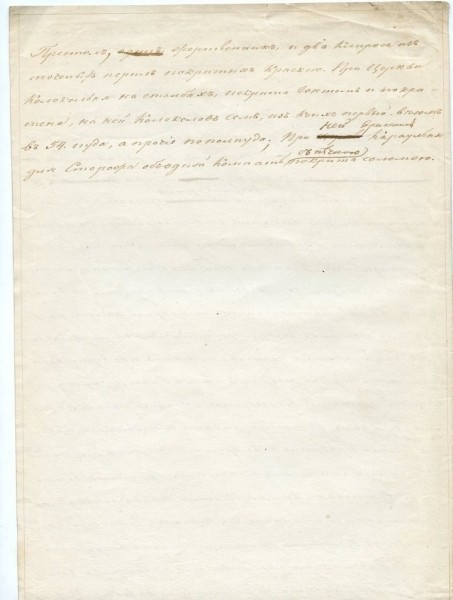 Престолъ, жертвенникъ, и два клироса изъ
точеныхъ перилъ покритыхъ краскою. При Церкви
колокольня на столбахъ, покрита гонтомъ и покра
шена, на ней колоколовъ семь, изъ коихъ первый вѣсомъ
въ 54. пуда, а прочіе по полпуда; При ней караулка
для Сторожа объ одной комнатѣ покрита соломою.